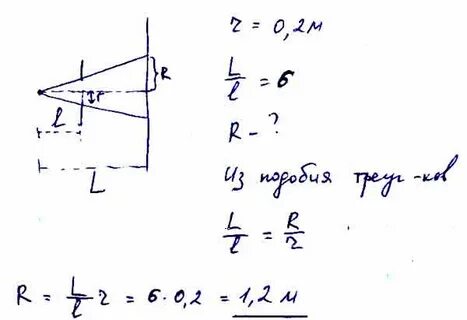 r = 0,2 м
L/l = 6
R - ?
R
r
l
L
Из подобия треуг-ков
L/l = R/r
R = L/l r = 6 · 0,2 = 1,2 м